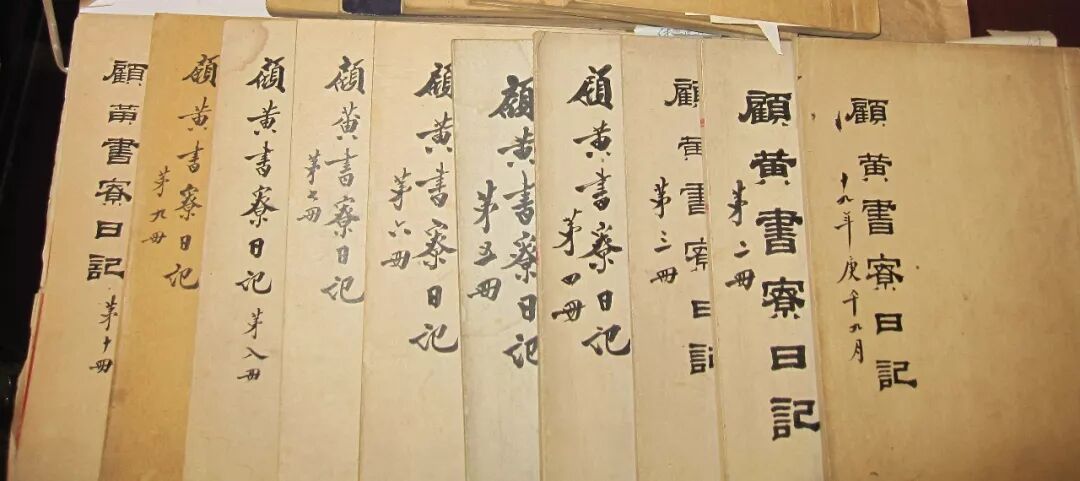 顧黄書寮日記
十九年庚午九月
顧黄書寮日記
第二冊
顧黄書寮日記
第三冊
顧黄書寮日記
第四冊
顧黄書寮日記
第五冊
顧黄書寮日記
第六冊
顧黄書寮日記
第七冊
顧黄書寮日記
第八冊
顧黄書寮日記
第九冊
顧黄書寮日記
第十冊